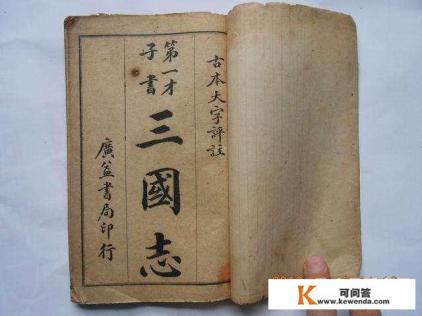 古本大字評註
第一才
子書
三國志
廣益書局印行
K 可问答
www.kewenda.com